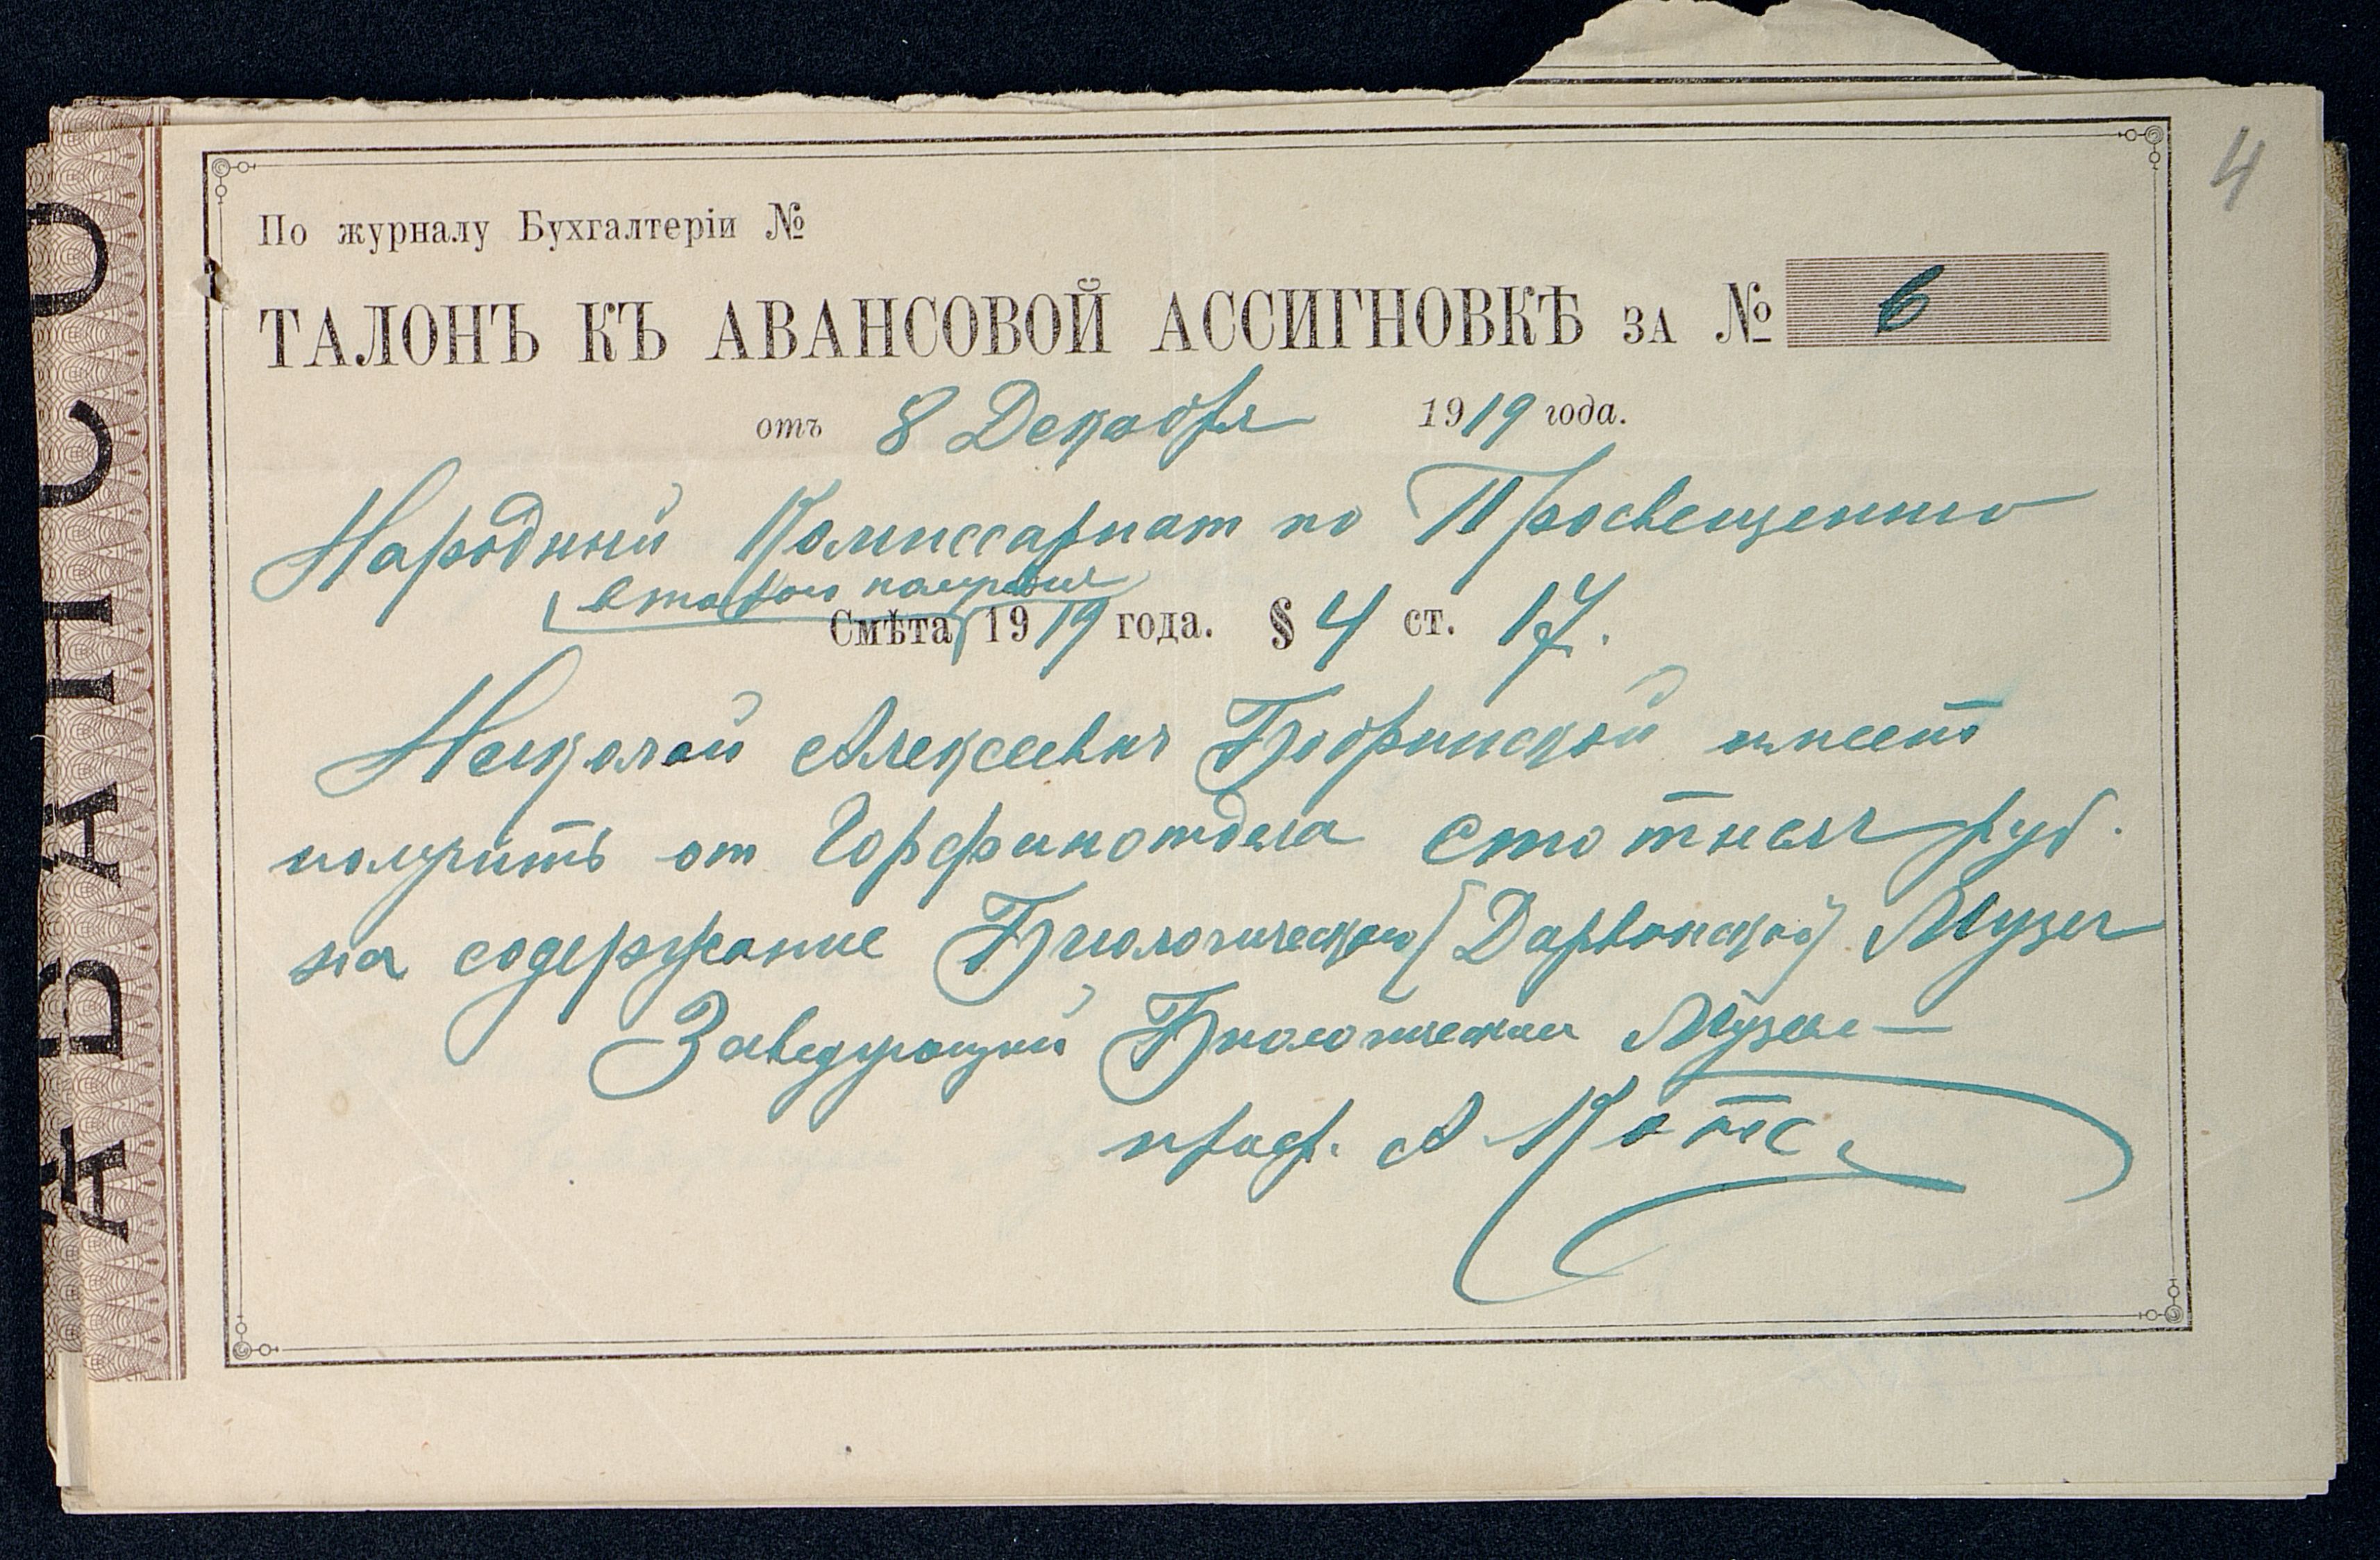 4
По журналу Бухгалтеріи №
ТАЛОНЪ КЪ АВАНСОВОЙ АССИГНОВКѢ ЗА № 6
отъ 8 Декабря 1919 года.
Народный Комиссариат по Просвещению
второго полугодия
Смѣта 1919 года. § 4 ст. 17.
Николай Алексеевич Бобринской имеет
получить от Горфинотдела сто тысяч руб.
на содержание Биологического (Дарвиновского) Музея
Заведующий Биологическим Музеем
проф. А Котс
АВАНСО